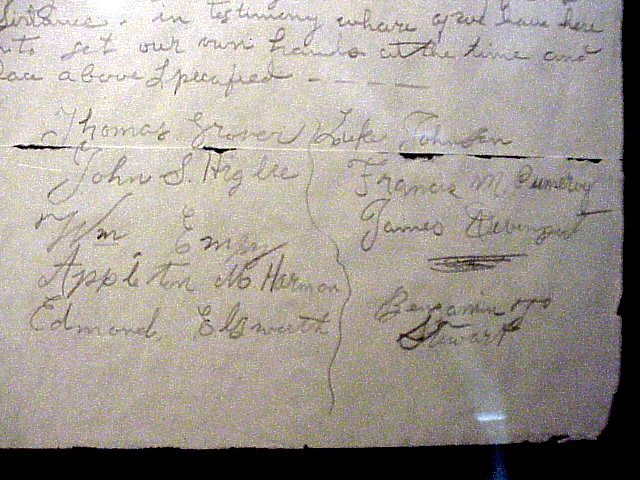 in testimony whare of we have here
unto set our own hands at the time and
place above Specified
Thomas Grover
John S. Higbee
Wm Empy
Appleton M Harmon
Edmond Elsworth
Luke Johnson
Francis M. Pumeroy
James Davenport
Benjamin
Stewart